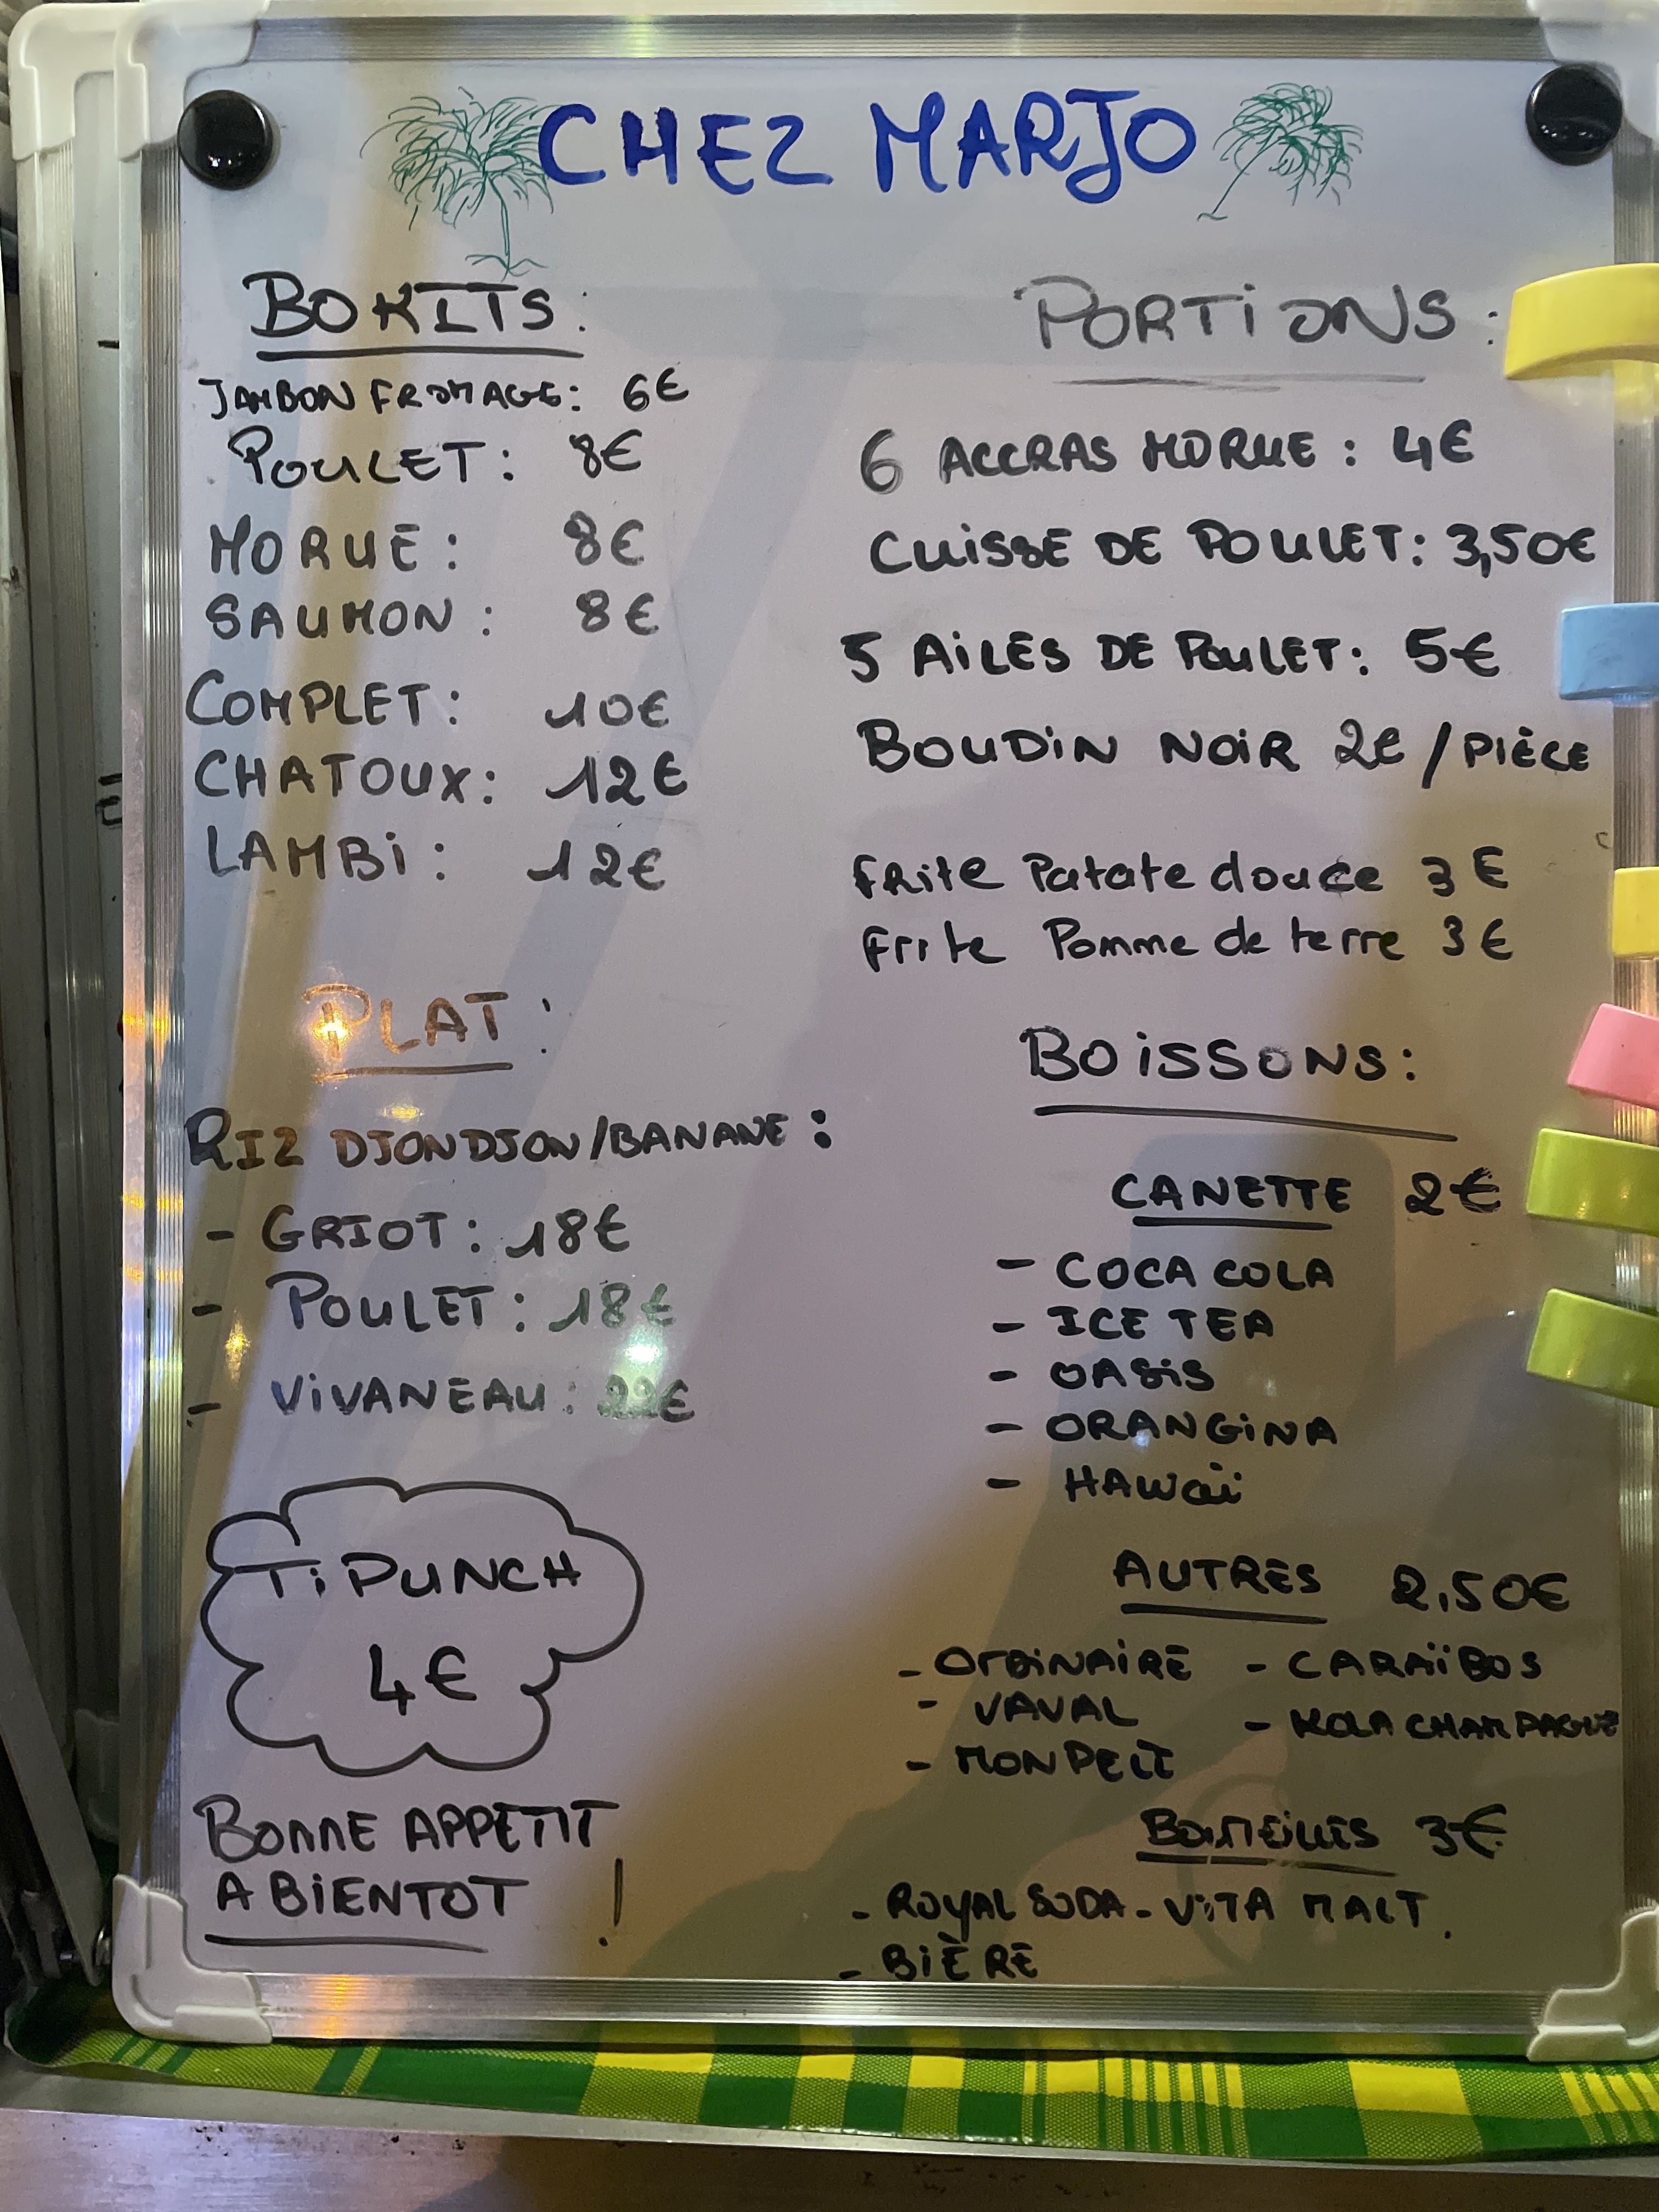 CHEZ MARJO
BOKITS:
JAMBON FROMAGE: 6€
POULET: 8€
MORUE: 8€
SAUMON: 8€
COMPLET: 10€
CHATOUX: 12€
LAMBi: 12€
PLAT:
RIZ DJONDJON/BANANE:
- GRIOT: 18€
- POULET: 18€
- ViVANEAU: 22€
Ti PUNCH
4€
BONNE APPETIT
A BiENTOT !
PORTiONS:
6 ACCRAS MORUE: 4€
CUiSSE DE POULET: 3,50€
5 AiLES DE POULET: 5€
BOUDiN NOiR 2€/PiÈCE
FRite Patate douce 3€
Frite Pomme de terre 3€
BOiSSONS:
CANETTE 2€
- COCA COLA
- ICE TEA
- OASiS
- ORANGiNA
- HAWaï
AUTRES 2,50€
- ORDiNAiRE - CARAÏBOS
- VAVAL - KOLA CHAMPAGNE
- MONPELI
BOUTEiLLES 3€
- ROYAL SODA - ViTA MALT.
- BiÈRE